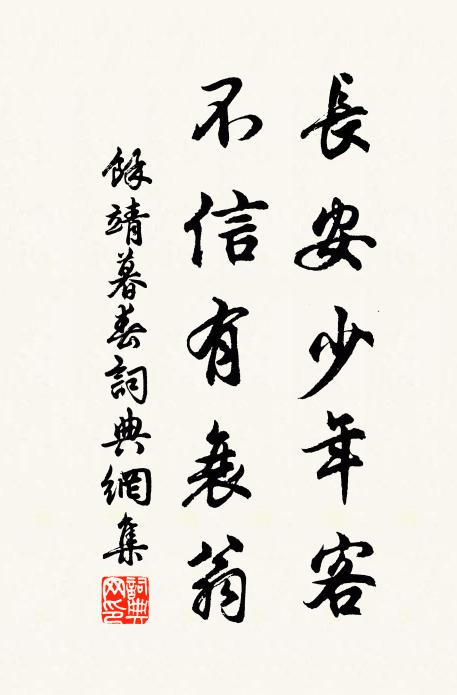 長安少年客
不信有衰翁
餘靖暮春詞典網集
詞典網印